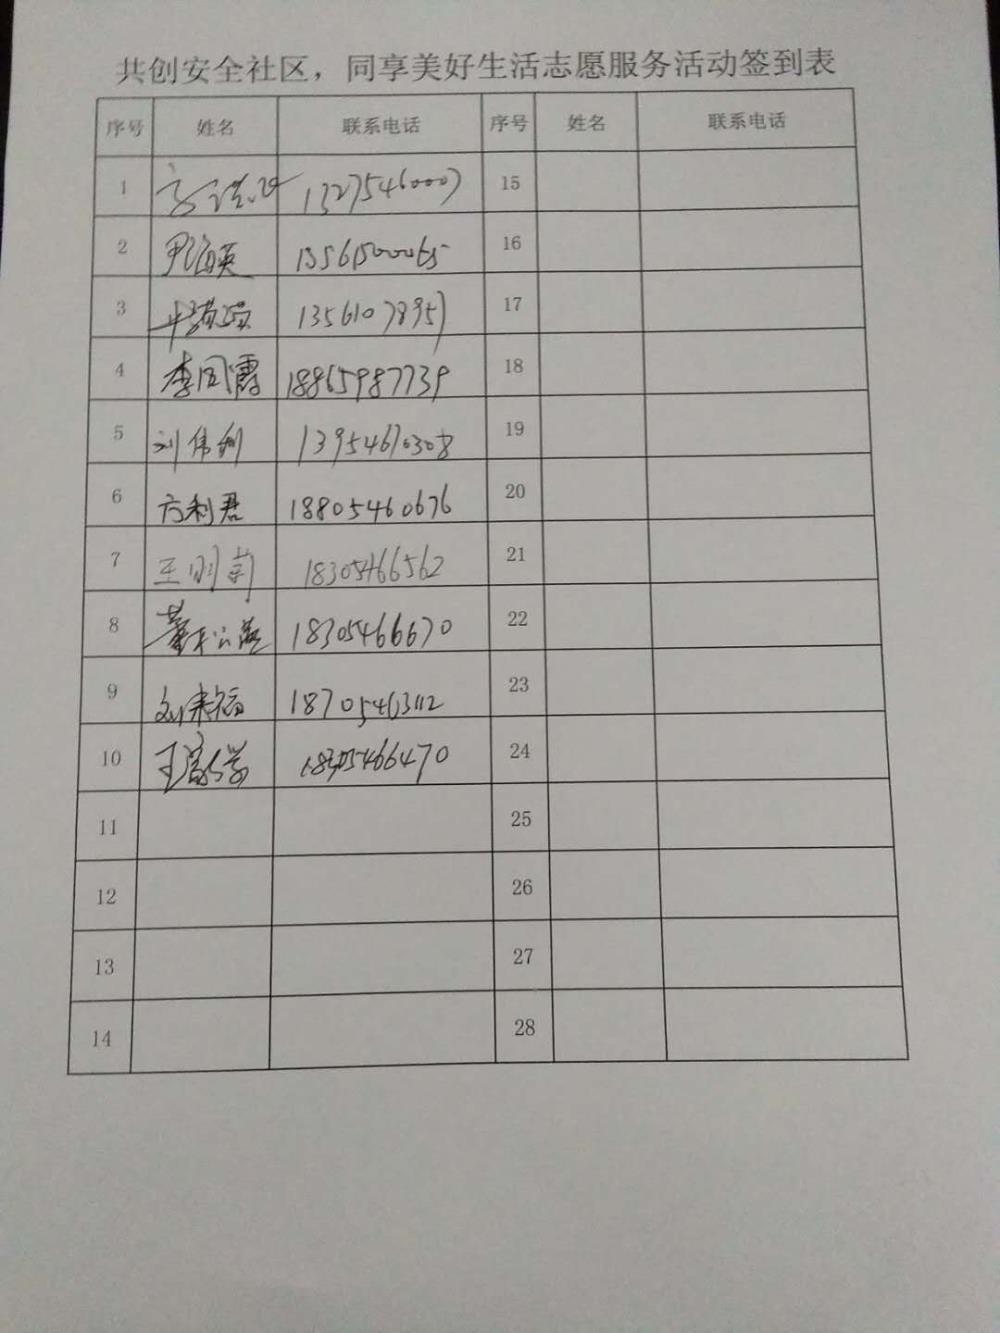 共创安全社区，同享美好生活志愿服务活动签到表
序号 姓名 联系电话 序号 姓名 联系电话
1 13275460007 15
2 尹海英 13561500065 16
3 13561078957 17
4 李凤霞 18865987739 18
5 刘伟利 13954670308 19
6 方利君 18805460676 20
7 王明莉 18305466562 21
8 董 18305466670 22
9 刘来福 18705463112 23
10 王 18305466470 24
11 25
12 26
13 27
14 28